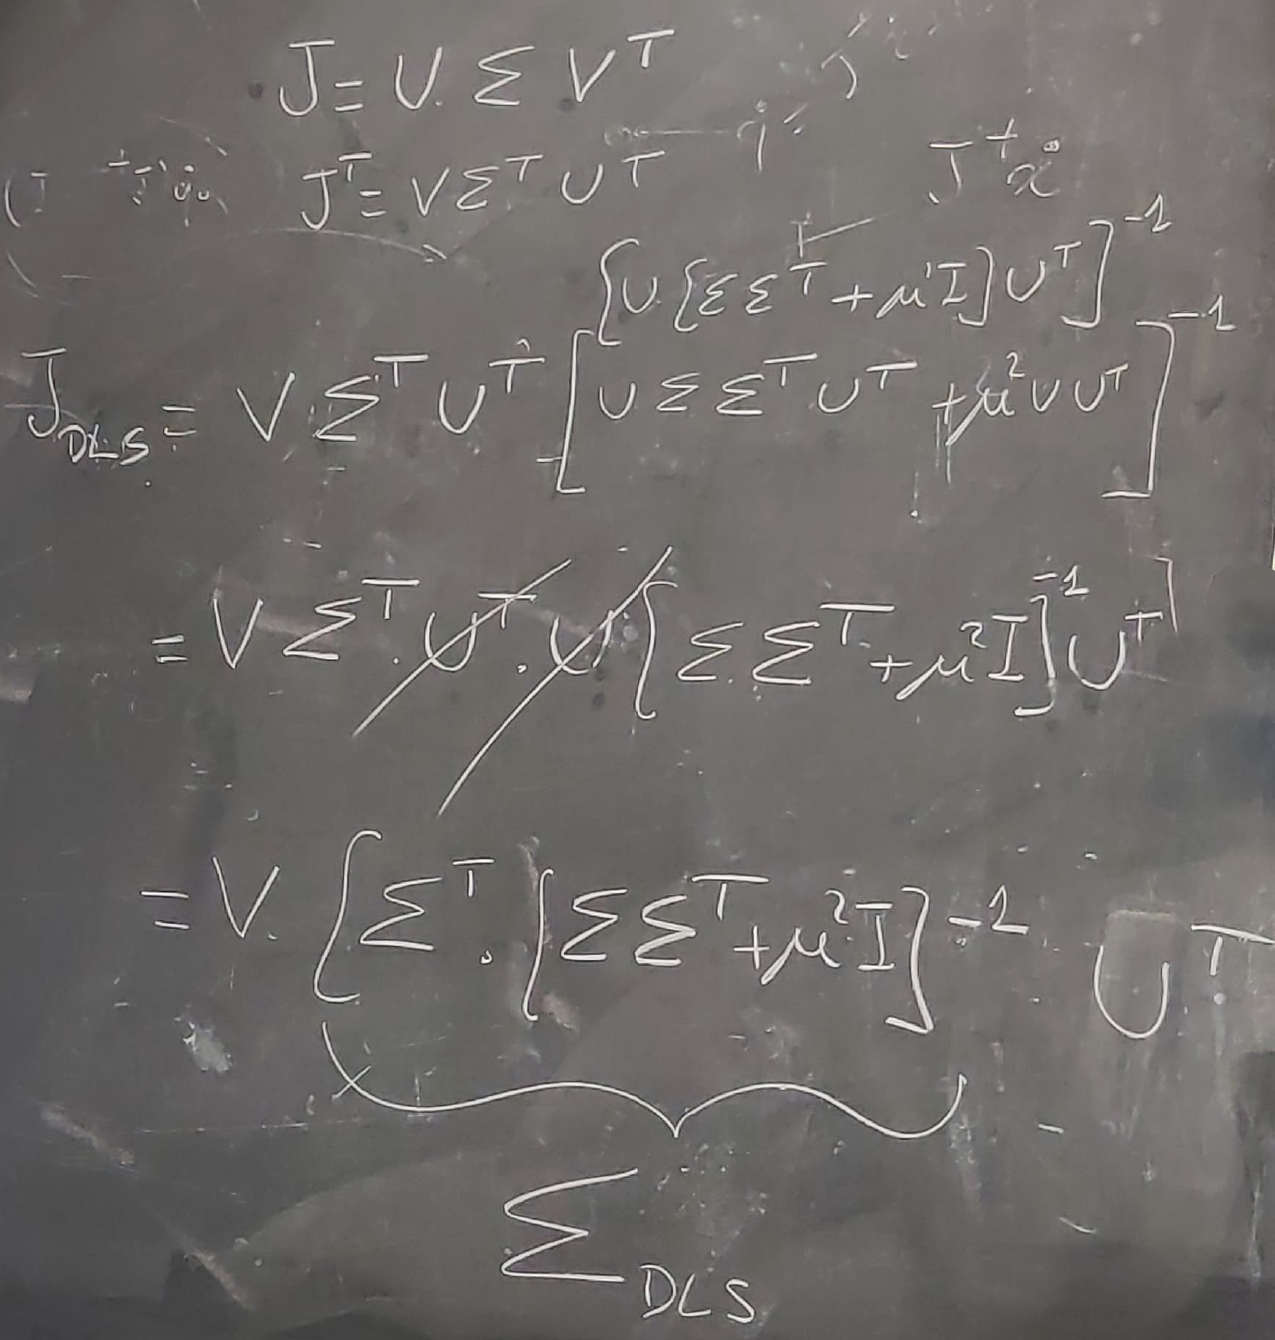 J = U. Σ Vᵀ
Jᵀ = V Σᵀ Uᵀ q̇ J⁺ẋ
[U [ΣΣᵀ + μ'I] Uᵀ]⁻¹
J_DLS = V Σᵀ Uᵀ [U Σ Σᵀ Uᵀ + μ² U Uᵀ]⁻¹
= V Σᵀ. Uᵀ. U [Σ. Σᵀ + μ² I]⁻¹ Uᵀ]
= V. [Σᵀ. [Σ Σᵀ + μ² I]⁻¹ Uᵀ
Σ_DLS